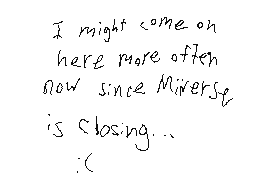 I might come on
here more often
now since Miiverse
is closing...
:(